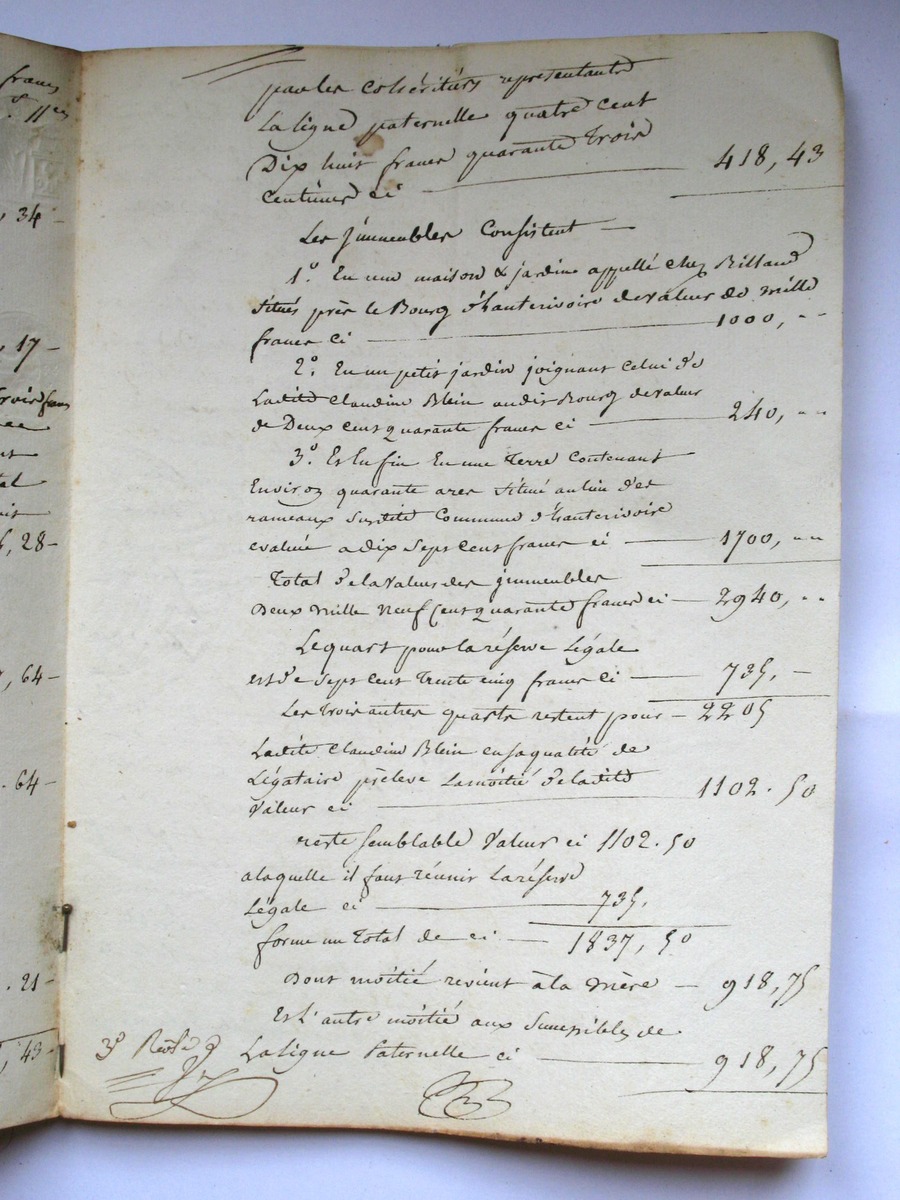 francs
s. 11es
, 34 -
, 17 -
trois francs
, 28 -
, 64 -
. 64 -
. 21 -
, 43 -
par les cohéritiers représentants
La ligne paternelle quatre cent
Dix huit francs quarante trois
Centimes ci — 418, 43
Les jmmeubles Consistent —
1º. En une maison & jardin appellé chez Rilland
situés près le Bourg d'hauterivoire de valeur de mille
francs ci — 1000, " "
2º. En un petit jardin joignant celui de
Ladite Claudine Blein audit Bourg de valeur
de Deux cent quarante francs ci — 240, " "
3º. Et Enfin En une Terre Contenant
Environ quarante ares situé au lieu des
rameaux susdite Commune d'hauterivoire
evaluée a dix sept cent francs ci — 1700, " "
Total de la valeur des jmmeubles
Deux mille neuf Cent quarante francs ci — 2940, " "
Le quart pour la réserve Légale
est de sept cent trente cinq francs ci — 735, -
Les trois autres quarts restent pour — 2205
Ladite Claudine Blein en sa qualité de
Légataire prélève La moitié de ladite
Valeur ci — 1102. 50
reste semblable Valeur ci 1102. 50
a laquelle il faut réunir La réserve
Légale ci — 735,
forme un Total de ci — 1837, 50
Dont moitié revient à la mère — 918, 75
Et L'autre moitié aux Successibles de
La ligne Paternelle ci — 918, 75
3º Rôle